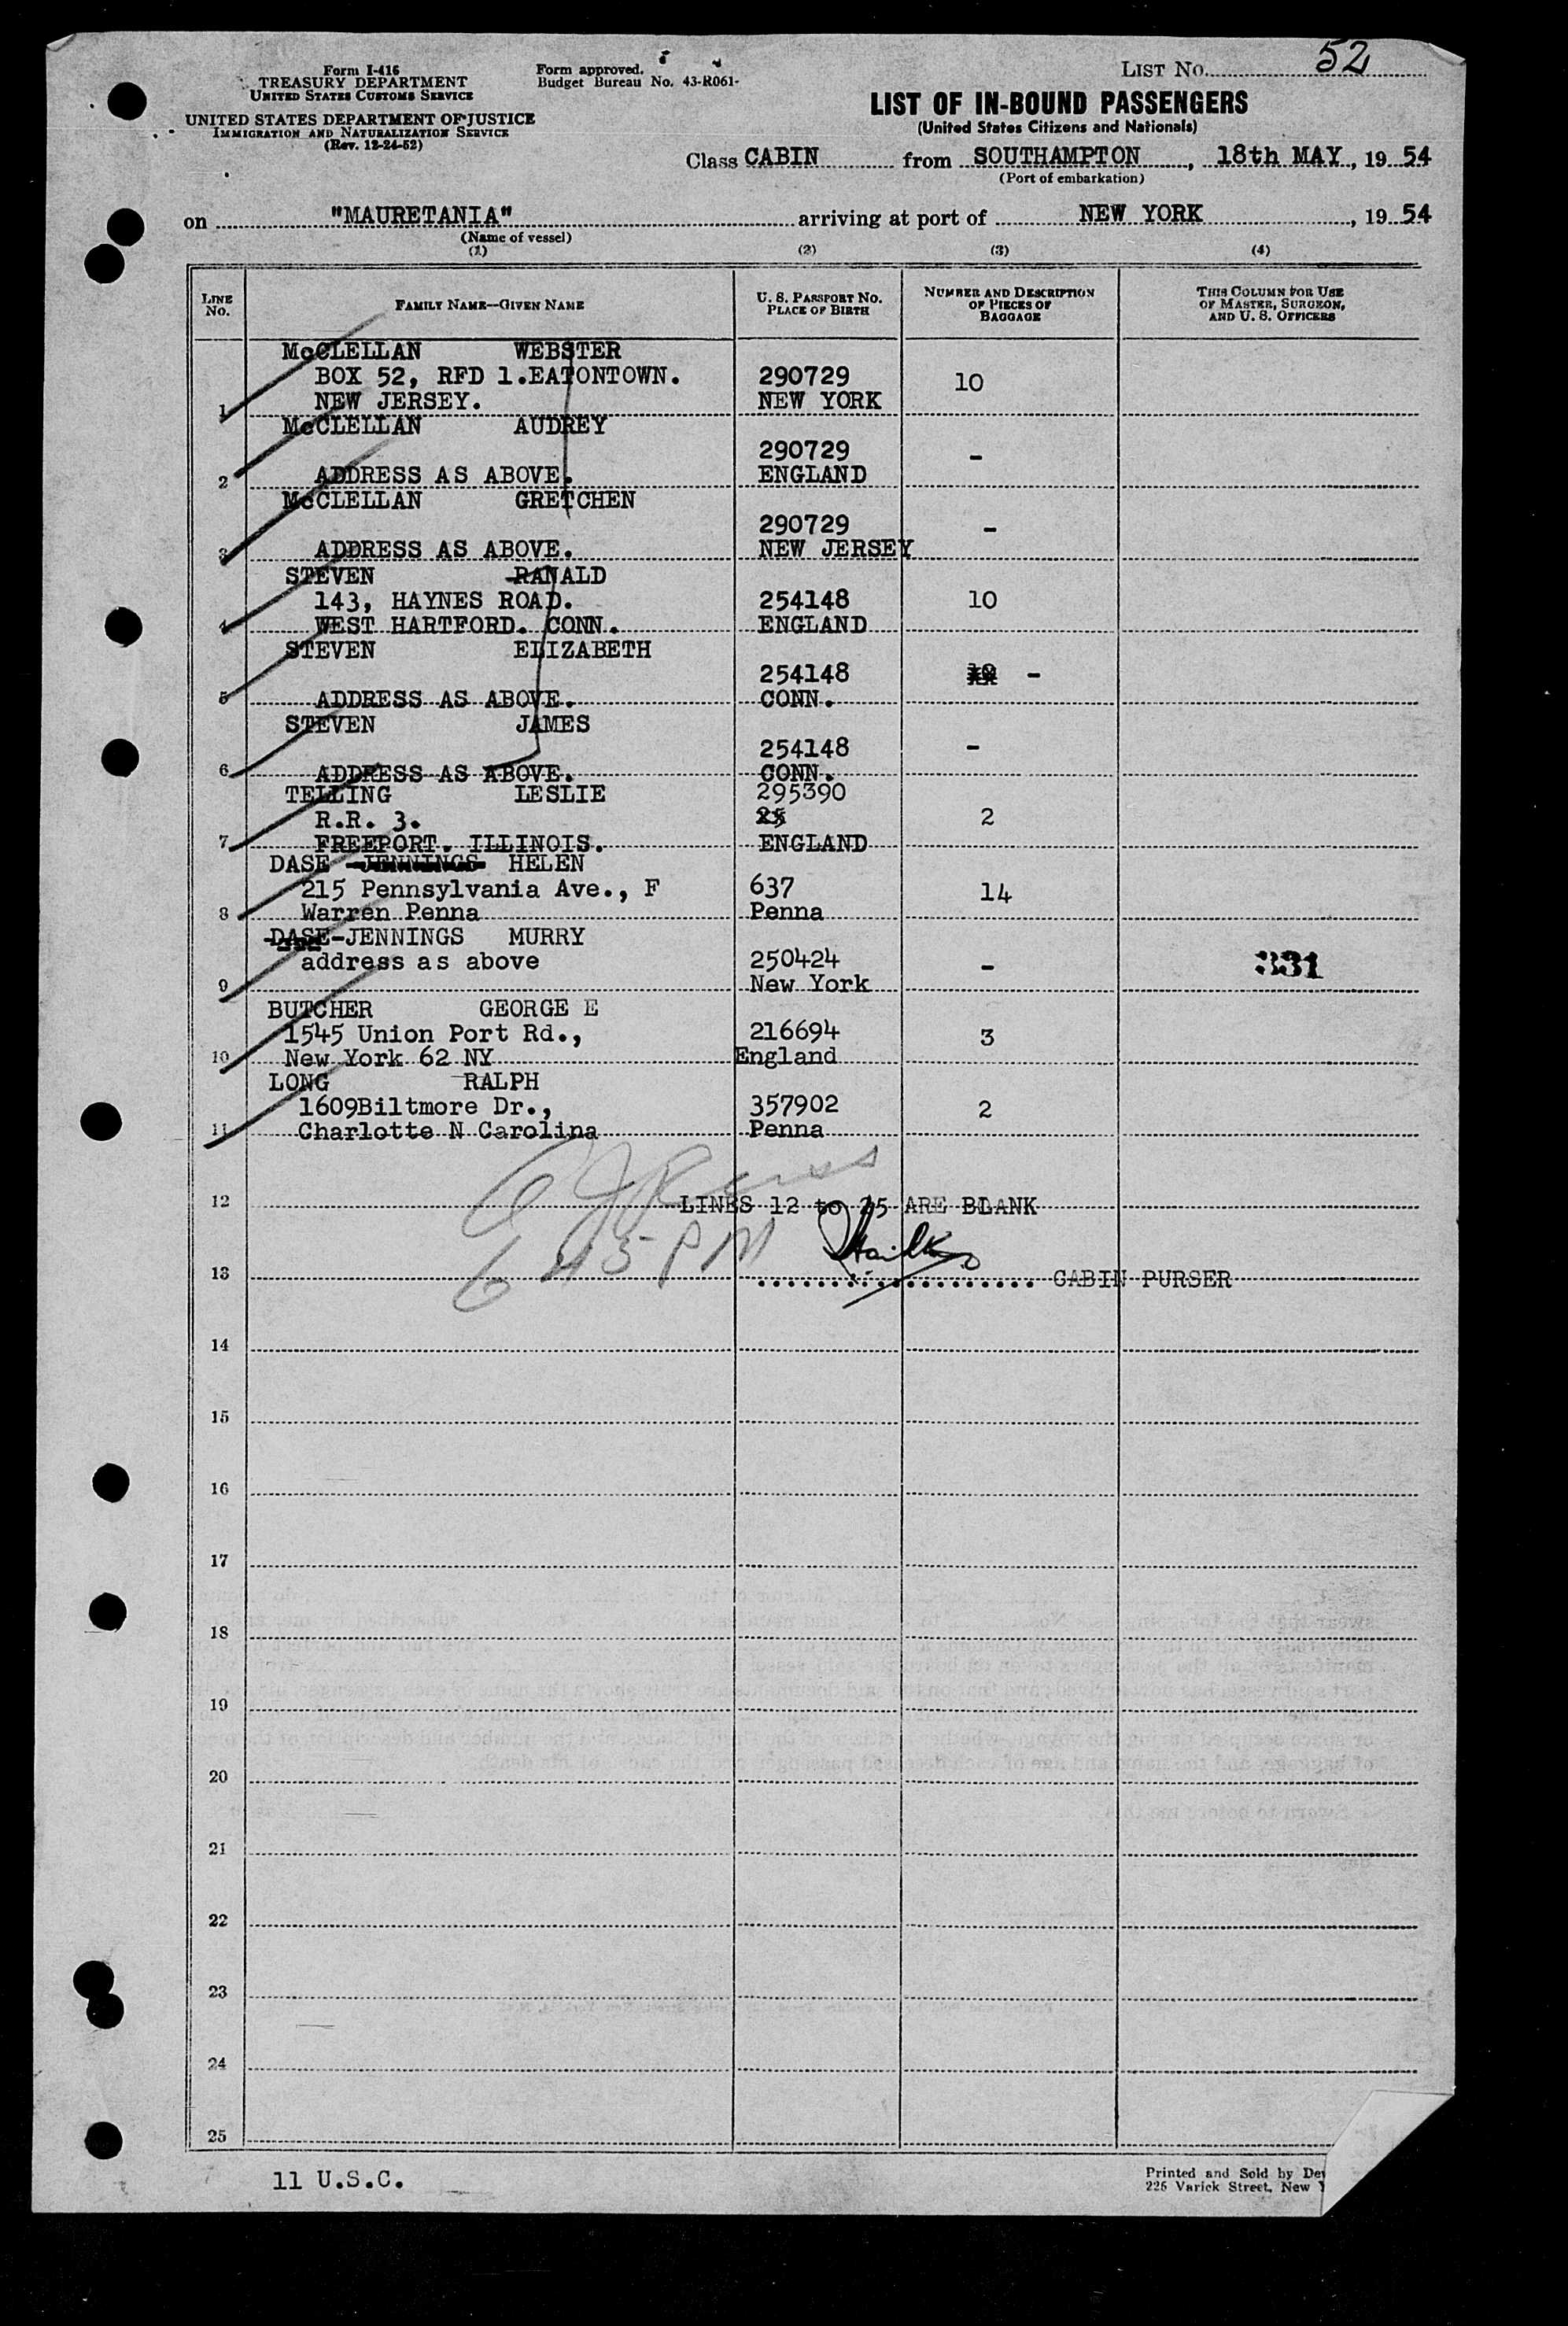 Form I-416
TREASURY DEPARTMENT
UNITED STATES CUSTOMS SERVICE
UNITED STATES DEPARTMENT OF JUSTICE
IMMIGRATION AND NATURALIZATION SERVICE
(Rev. 12-24-52)
Form approved.
Budget Bureau No. 43-R061-
LIST No. 52
LIST OF IN-BOUND PASSENGERS
(United States Citizens and Nationals)
Class CABIN from SOUTHAMPTON, 18th MAY, 19 54
(Port of embarkation)
on "MAURETANIA" arriving at port of NEW YORK, 19 54
(Name of vessel)
(1) (2) (3) (4)
LINE No. FAMILY NAME—GIVEN NAME U. S. PASSPORT NO. PLACE OF BIRTH NUMBER AND DESCRIPTION OF PIECES OF BAGGAGE THIS COLUMN FOR USE OF MASTER, SURGEON, AND U. S. OFFICERS
McCLELLAN WEBSTER
BOX 52, RFD 1.EATONTOWN. 290729 10
1 NEW JERSEY. NEW YORK
McCLELLAN AUDREY
290729 -
2 ADDRESS AS ABOVE. ENGLAND
McCLELLAN GRETCHEN
290729 -
3 ADDRESS AS ABOVE. NEW JERSEY
STEVEN RANALD
143, HAYNES ROAD. 254148 10
4 WEST HARTFORD. CONN. ENGLAND
STEVEN ELIZABETH
254148 -
5 ADDRESS AS ABOVE. CONN.
STEVEN JAMES
254148 -
6 ADDRESS AS ABOVE. CONN.
TELLING LESLIE 295390
R.R. 3. 2
7 FREEPORT. ILLINOIS. ENGLAND
DASE JENNINGS HELEN
215 Pennsylvania Ave., F 637 14
8 Warren Penna Penna
DASE-JENNINGS MURRY
address as above 250424 - 331
9 New York
BUTCHER GEORGE E
1545 Union Port Rd., 216694 3
10 New York 62 NY England
LONG RALPH
1609Biltmore Dr., 357902 2
11 Charlotte N Carolina Penna
12 LINES 12 to 25 ARE BLANK
6 45 PM
13 CABIN PURSER
14
15
16
17
18
19
20
21
22
23
24
25
11 U.S.C.
Printed and Sold by
225 Varick Street, New